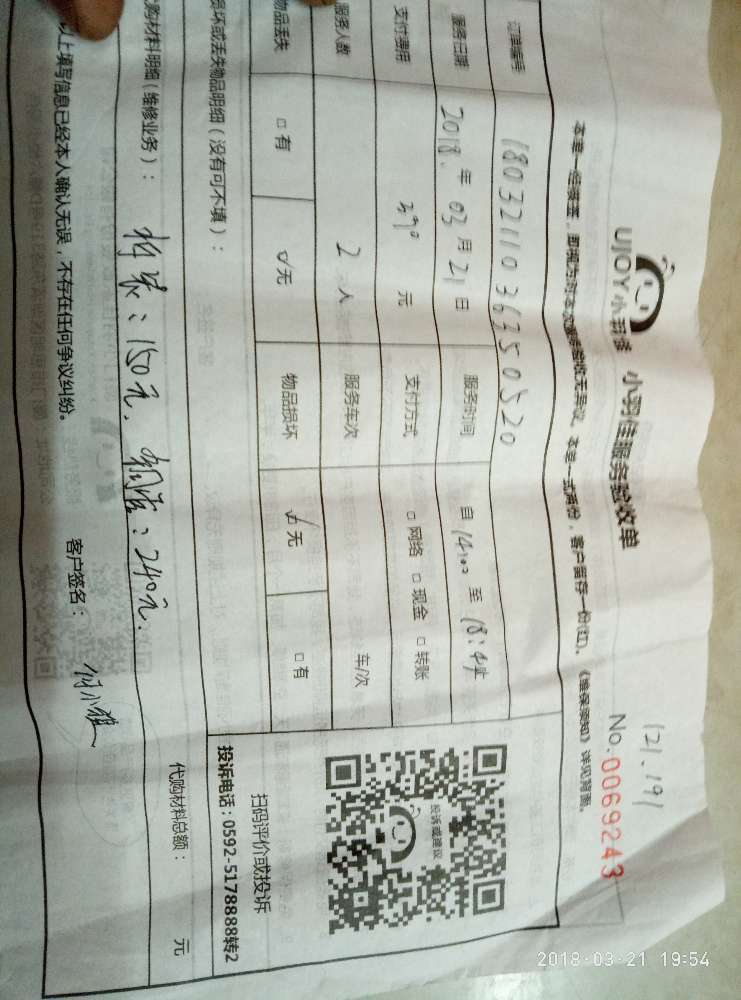 121.191
UJOY小羽佳 小羽佳服务验收单
No:0069243
本单一式两份，客户留存一份(红)。《维保须知》详见背面。
订单编号 18032110363505​20
服务日期 2018年03月21日 服务时间 自14:00至18:4
支付费用 390元 支付方式 □网络 □现金 □转账
服务人数 2人 服务车次 车/次
物品丢失 □有 √无 物品损坏 √无 □有
损坏或丢失物品明细（没有可不填）：
扫码评价或投诉
投诉电话：0592-5178888转2
投诉或建议
购材料明细（维修业务）： 拆装：150元， 铜管：240元.
代购材料总额： 元
以上填写信息已经本人确认无误，不存在任何争议纠纷。 客户签名： 何小雅
2018-03-21 19:54